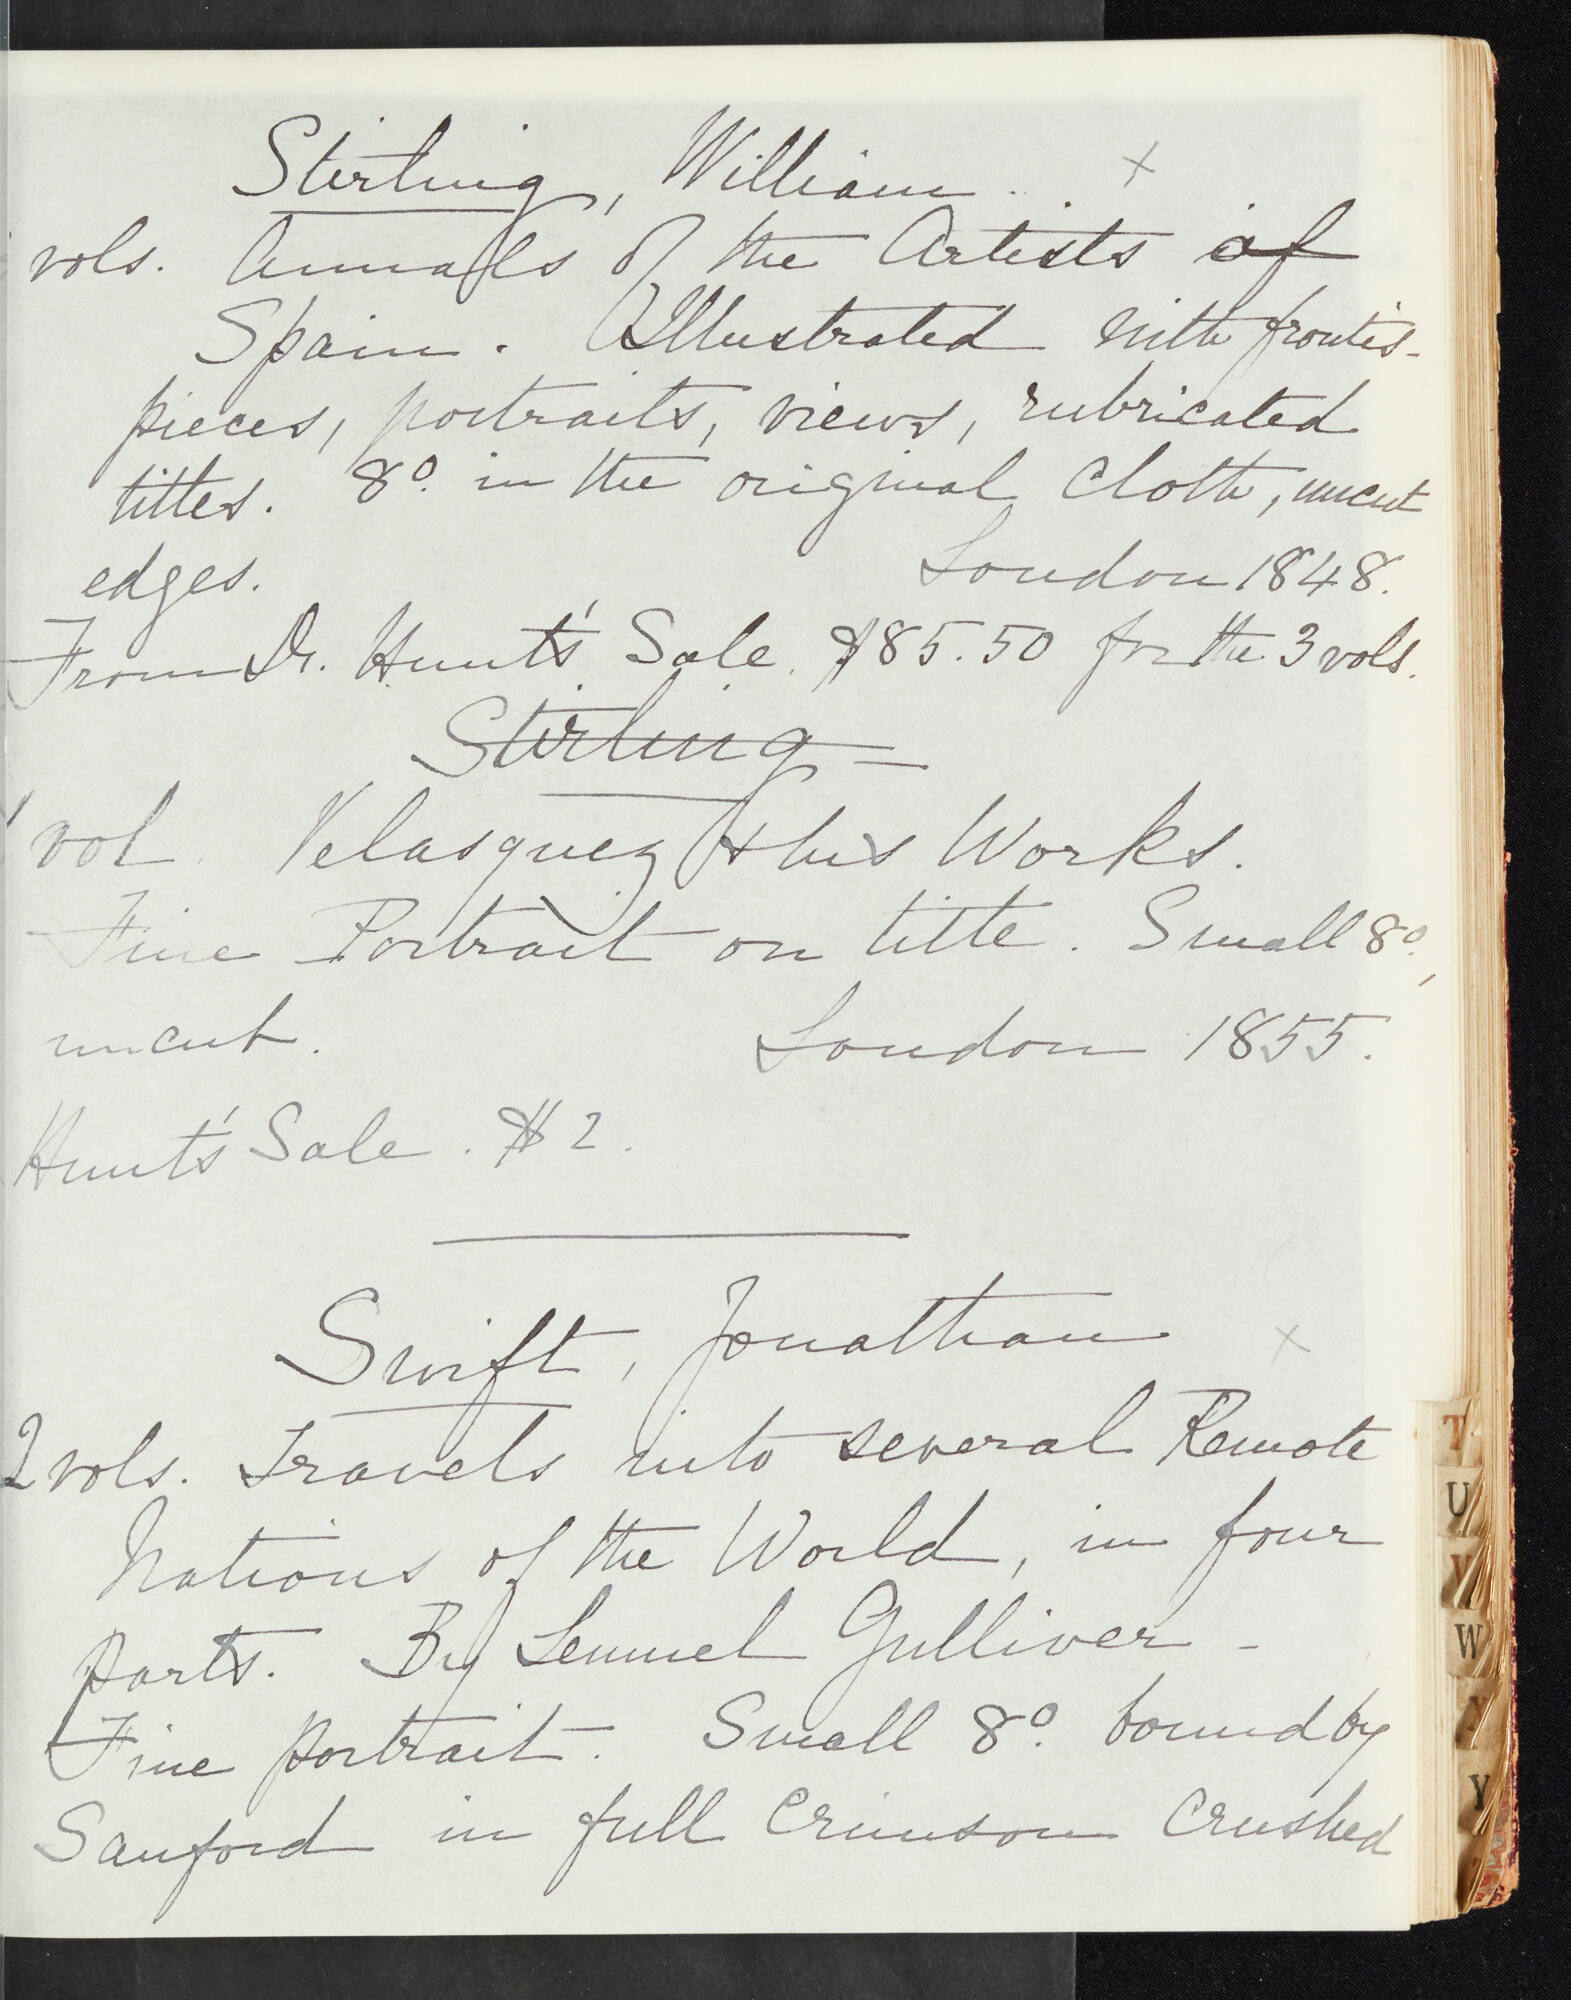 Stirling, William. x
vols. Annals of the Artists of
Spain. Illustrated with frontis-
pieces, portraits, views, rubricated
titles. 8º. in the original cloth, uncut
edges. London 1848.
From Dr. Hunt's Sale. $85.50 for the 3 vols.
Stirling –
1 vol. Velasquez & his Works.
Fine Portrait on title. Small 8º,
uncut. London 1855.
Hunt's Sale. $2.
Swift, Jonathan x
2 vols. Travels into several Remote
Nations of the World, in four
parts. By Lemuel Gulliver –
Fine portrait – Small 8º. bound by
Sanford in full Crimson Crushed
T
U
V
W
X
Y